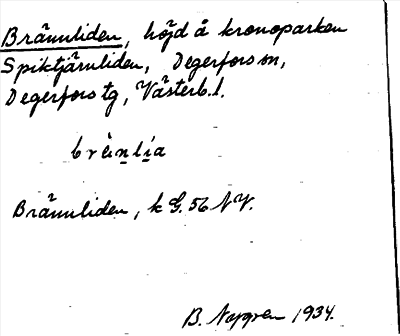 Brännliden, höjd å kronoparken
Spiktjärnliden, Degerfors sn,
Degerfors tg, Västerb. l.
Brännliden, k G. 56 NV.
B. 1934.